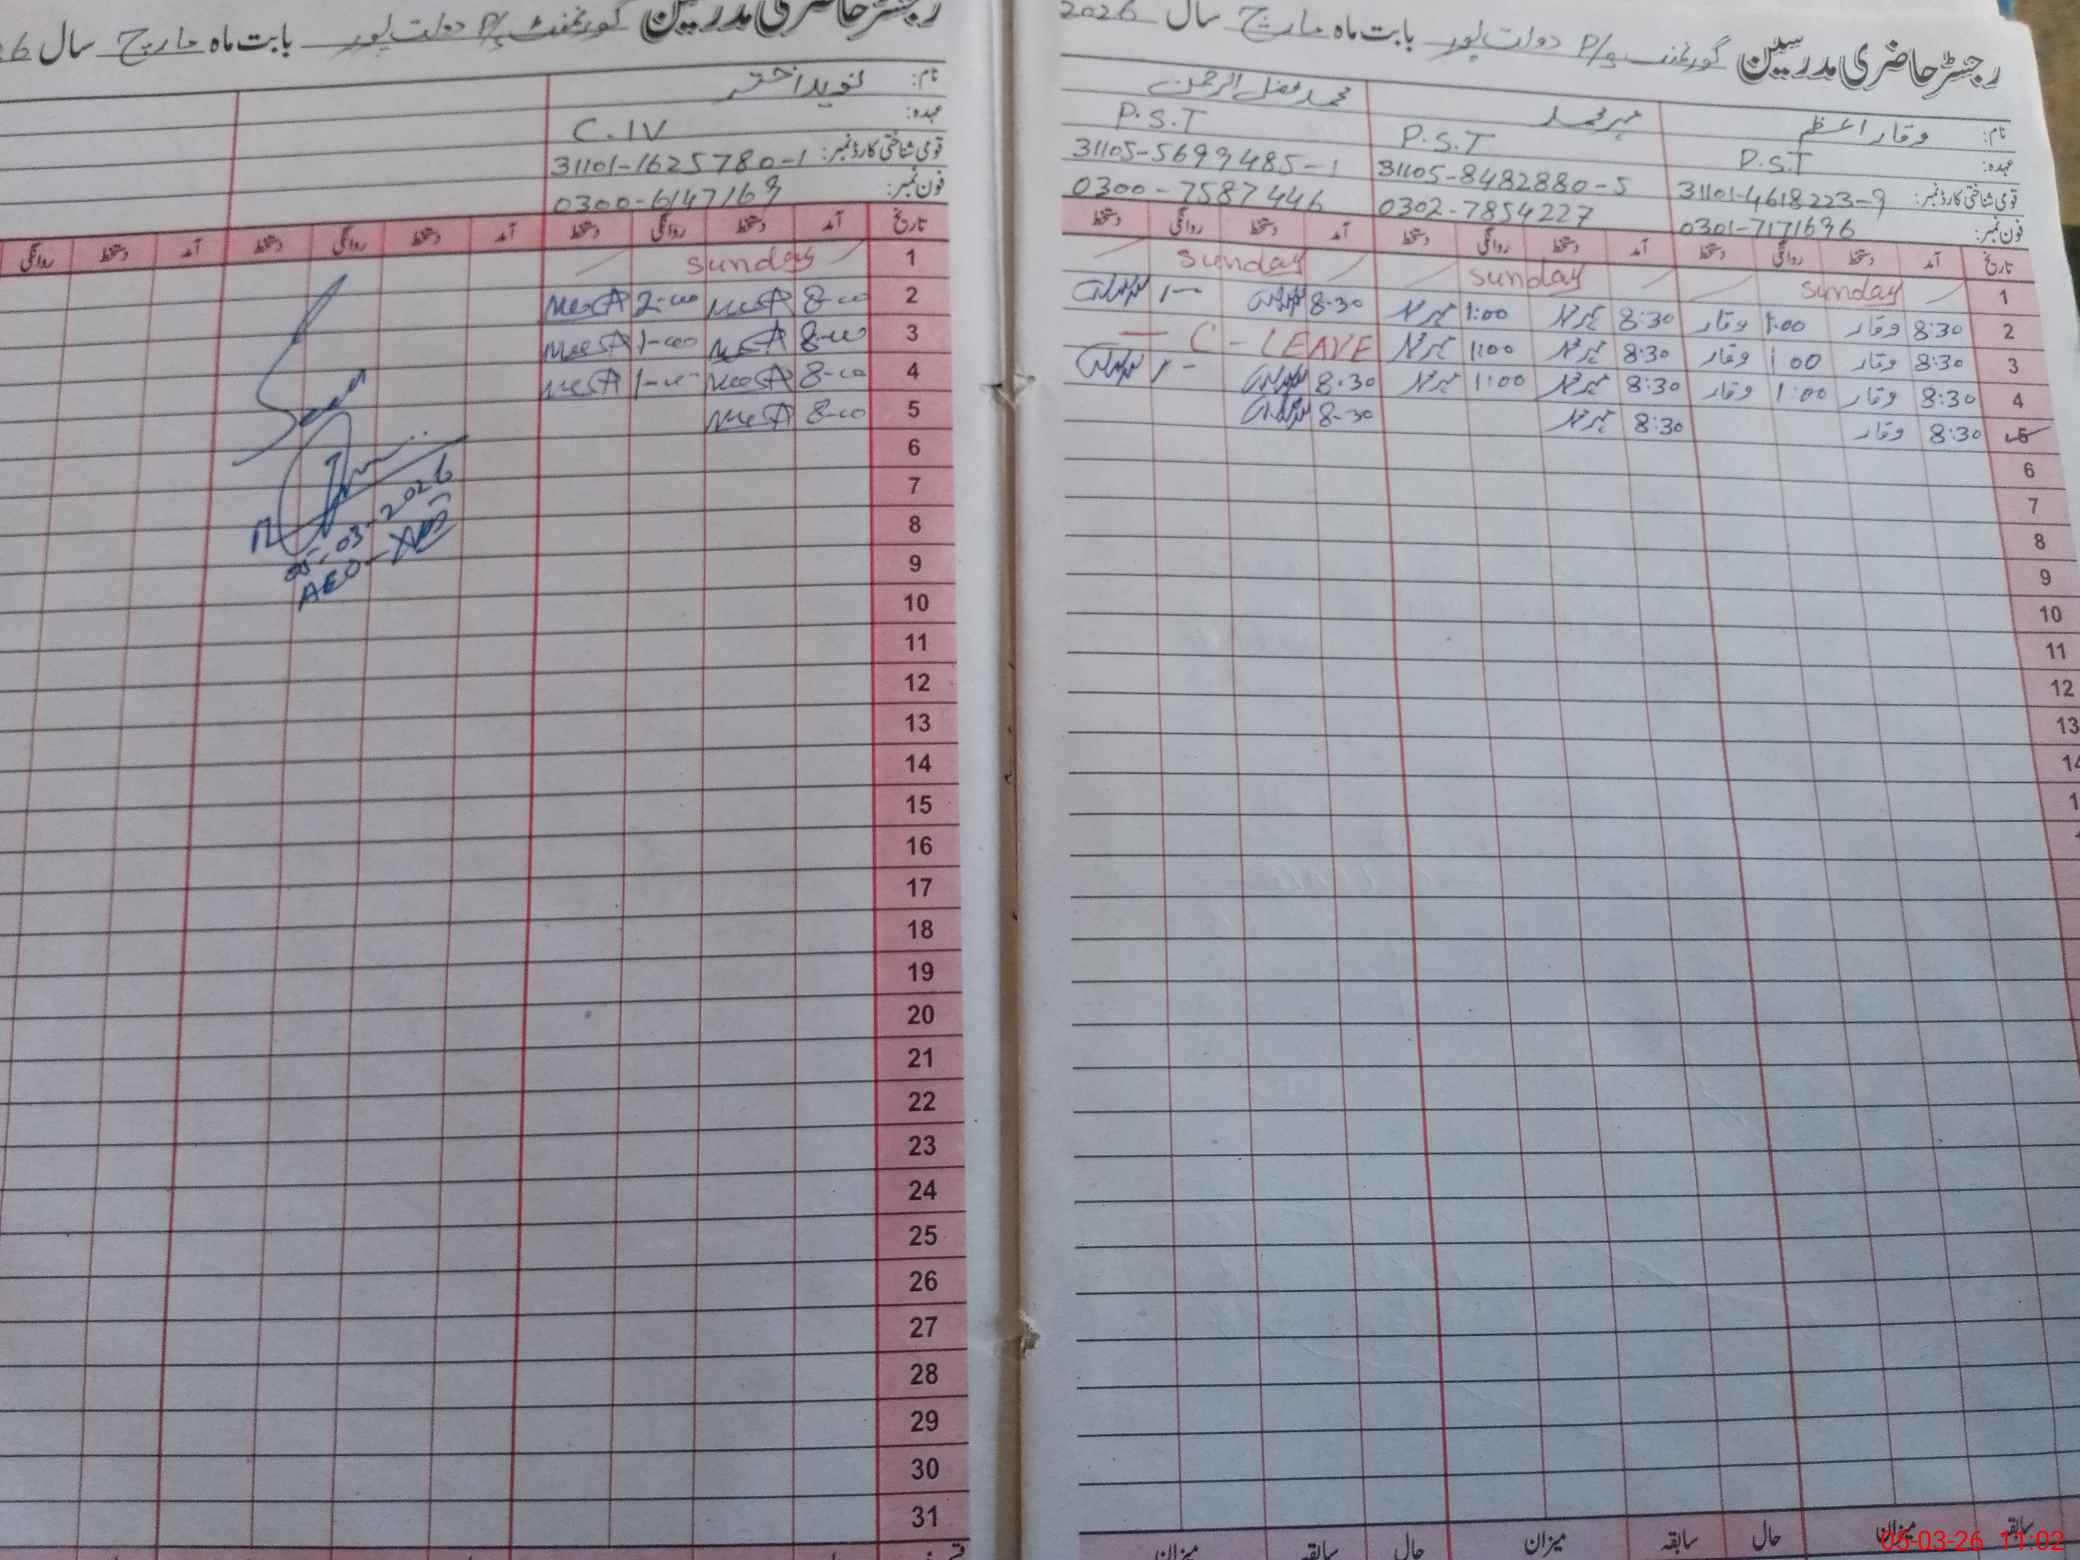 رجسٹر حاضری مدرسین گورنمنٹ P/S دولت پور بابت ماہ مارچ سال 2026
نام: وقار اعظم میر محمد محمد فضل الرحمن
عہدہ: P.S.T P.S.T P.S.T
قومی شناختی کارڈ نمبر: 31101-4618223-9 31105-8482880-5 31105-5699485-1
فون نمبر: 0301-7171696 0302-7854227 0300-7587446
تاریخ آمد دستخط روانگی دستخط آمد دستخط روانگی دستخط آمد دستخط روانگی دستخط
1 Sunday Sunday Sunday
2 8:30 وقار 1:00 وقار 8:30 میر محمد 1:00 میر محمد 8-30 1-
3 8:30 وقار 1:00 وقار 8:30 میر محمد 1:00 میر محمد C-LEAVE
4 8:30 وقار 1:00 وقار 8:30 میر محمد 1:00 میر محمد 8.30 1-
5 8:30 وقار 8:30 میر محمد 8-30
6
7
8
9
10
11
12
13
14
سابقہ میزان حال سابقہ میزان حال سابقہ میزان
رجسٹر حاضری مدرسین گورنمنٹ P/S دولت پور بابت ماہ مارچ سال
نام: نوید اختر
عہدہ: C.IV
قومی شناختی کارڈ نمبر: 31101-1625780-1
فون نمبر: 0300-6147169
تاریخ آمد دستخط روانگی دستخط آمد دستخط روانگی دستخط آمد دستخط روانگی
1 Sunday
2 8-00 2-00
3 8-00 1-00
4 8-00 1-00
5 8-00
6
7
8
9
10
11
12
13
14
15
16
17
18
19
20
21
22
23
24
25
26
27
28
29
30
31
05-03-2026
AEO-
05-03-26 11:02